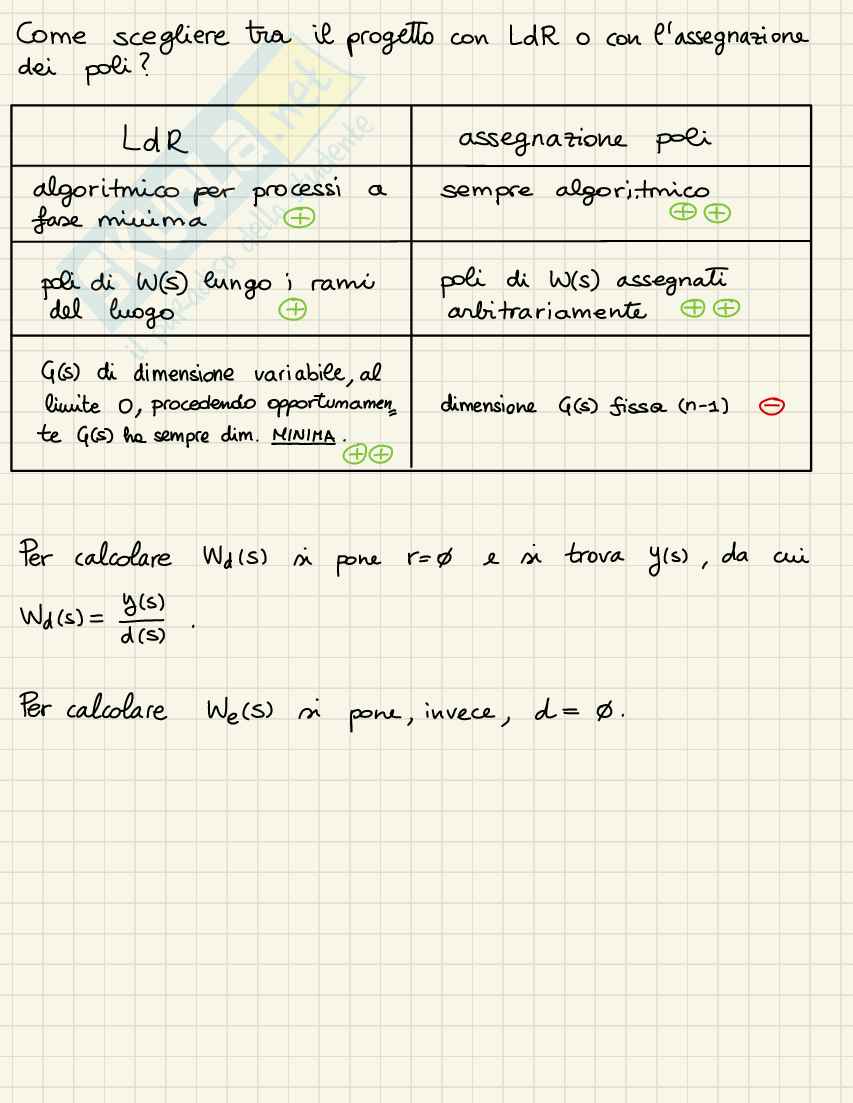 Come scegliere tra il progetto con LdR o con l'assegnazione
dei poli?
LdR
assegnazione poli
algoritmico per processi a
fase minima ⊕
sempre algoritmico
⊕ ⊕
poli di W(s) lungo i rami
del luogo ⊕
poli di W(s) assegnati
arbitrariamente ⊕ ⊕
G(s) di dimensione variabile, al
limite 0, procedendo opportunamen
te G(s) ha sempre dim. MINIMA.
⊕⊕
dimensione G(s) fissa (n-1) ⊖
Per calcolare Wd(s) si pone r=∅ e si trova y(s), da cui
Wd(s) = y(s)/d(s) .
Per calcolare We(s) si pone, invece, d = ∅.
SKUOLA.net
il paradiso dello studente